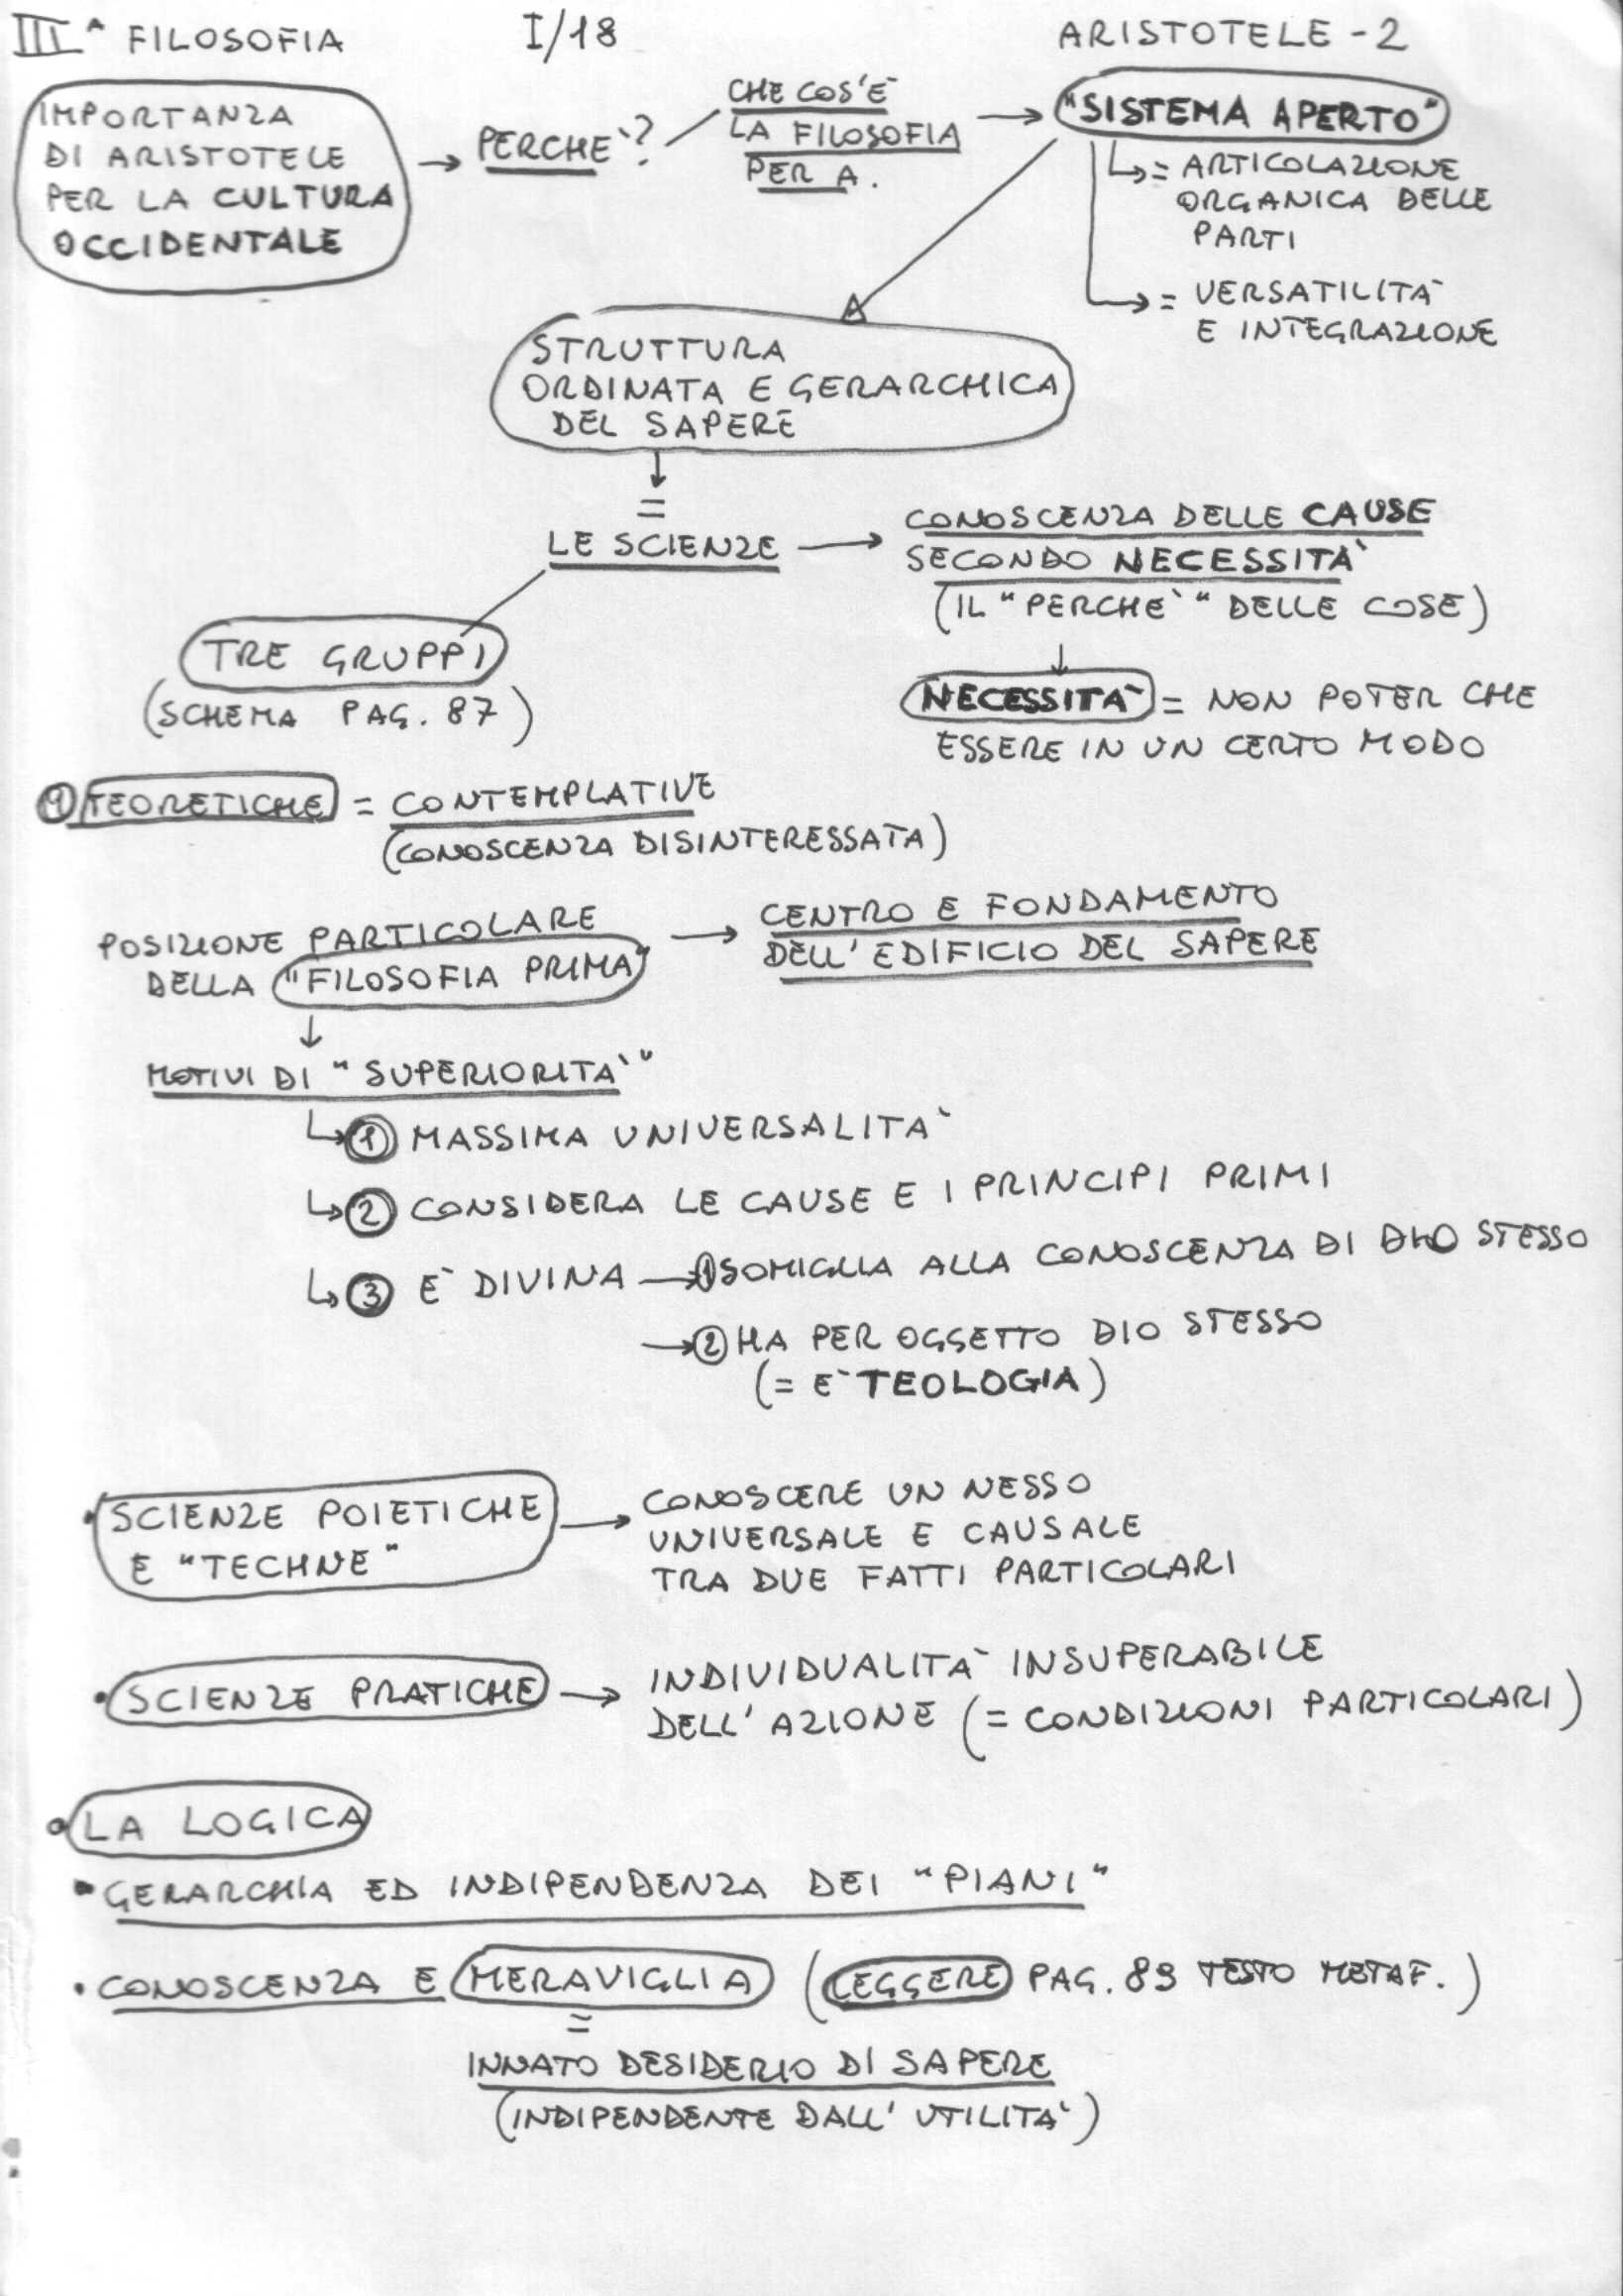 IIIᴬ FILOSOFIA I/18 ARISTOTELE - 2
IMPORTANZA
DI ARISTOTELE
PER LA CULTURA
OCCIDENTALE
PERCHE'?
CHE COS'È
LA FILOSOFIA
PER A.
"SISTEMA APERTO"
= ARTICOLAZIONE
ORGANICA DELLE
PARTI
= VERSATILITÀ
E INTEGRAZIONE
STRUTTURA
ORDINATA E GERARCHICA
DEL SAPERE
=
LE SCIENZE
CONOSCENZA DELLE CAUSE
SECONDO NECESSITÀ
(IL "PERCHE'" DELLE COSE)
NECESSITÀ = NON POTER CHE
ESSERE IN UN CERTO MODO
TRE GRUPPI
(SCHEMA PAG. 87)
1 TEORETICHE = CONTEMPLATIVE
(CONOSCENZA DISINTERESSATA)
POSIZIONE PARTICOLARE
DELLA "FILOSOFIA PRIMA"
CENTRO E FONDAMENTO
DELL'EDIFICIO DEL SAPERE
MOTIVI DI "SUPERIORITÀ"
1 MASSIMA UNIVERSALITÀ
2 CONSIDERA LE CAUSE E I PRINCIPI PRIMI
3 È DIVINA 1 SOMIGLIA ALLA CONOSCENZA DI DIO STESSO
2 HA PER OGGETTO DIO STESSO
(= È TEOLOGIA)
• SCIENZE POIETICHE
E "TECHNE"
CONOSCERE UN NESSO
UNIVERSALE E CAUSALE
TRA DUE FATTI PARTICOLARI
• SCIENZE PRATICHE
INDIVIDUALITÀ INSUPERABILE
DELL'AZIONE (= CONDIZIONI PARTICOLARI)
• LA LOGICA
• GERARCHIA ED INDIPENDENZA DEI "PIANI"
• CONOSCENZA E MERAVIGLIA (LEGGERE PAG. 89 TESTO METAF.)
=
INNATO DESIDERIO DI SAPERE
(INDIPENDENTE DALL'UTILITÀ)